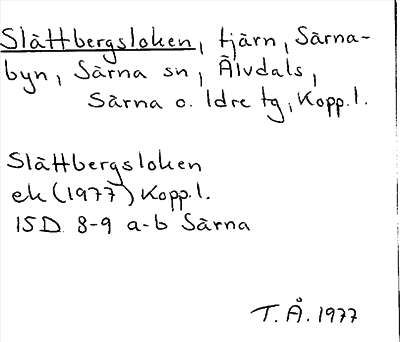 Slättbergsloken, tjärn, Särna-
byn, Särna sn, Älvdals,
Särna o. Idre tg, Kopp. l.
Slättbergsloken
ek (1977) Kopp. l.
15D 8-9 a-b Särna
T. Å. 1977